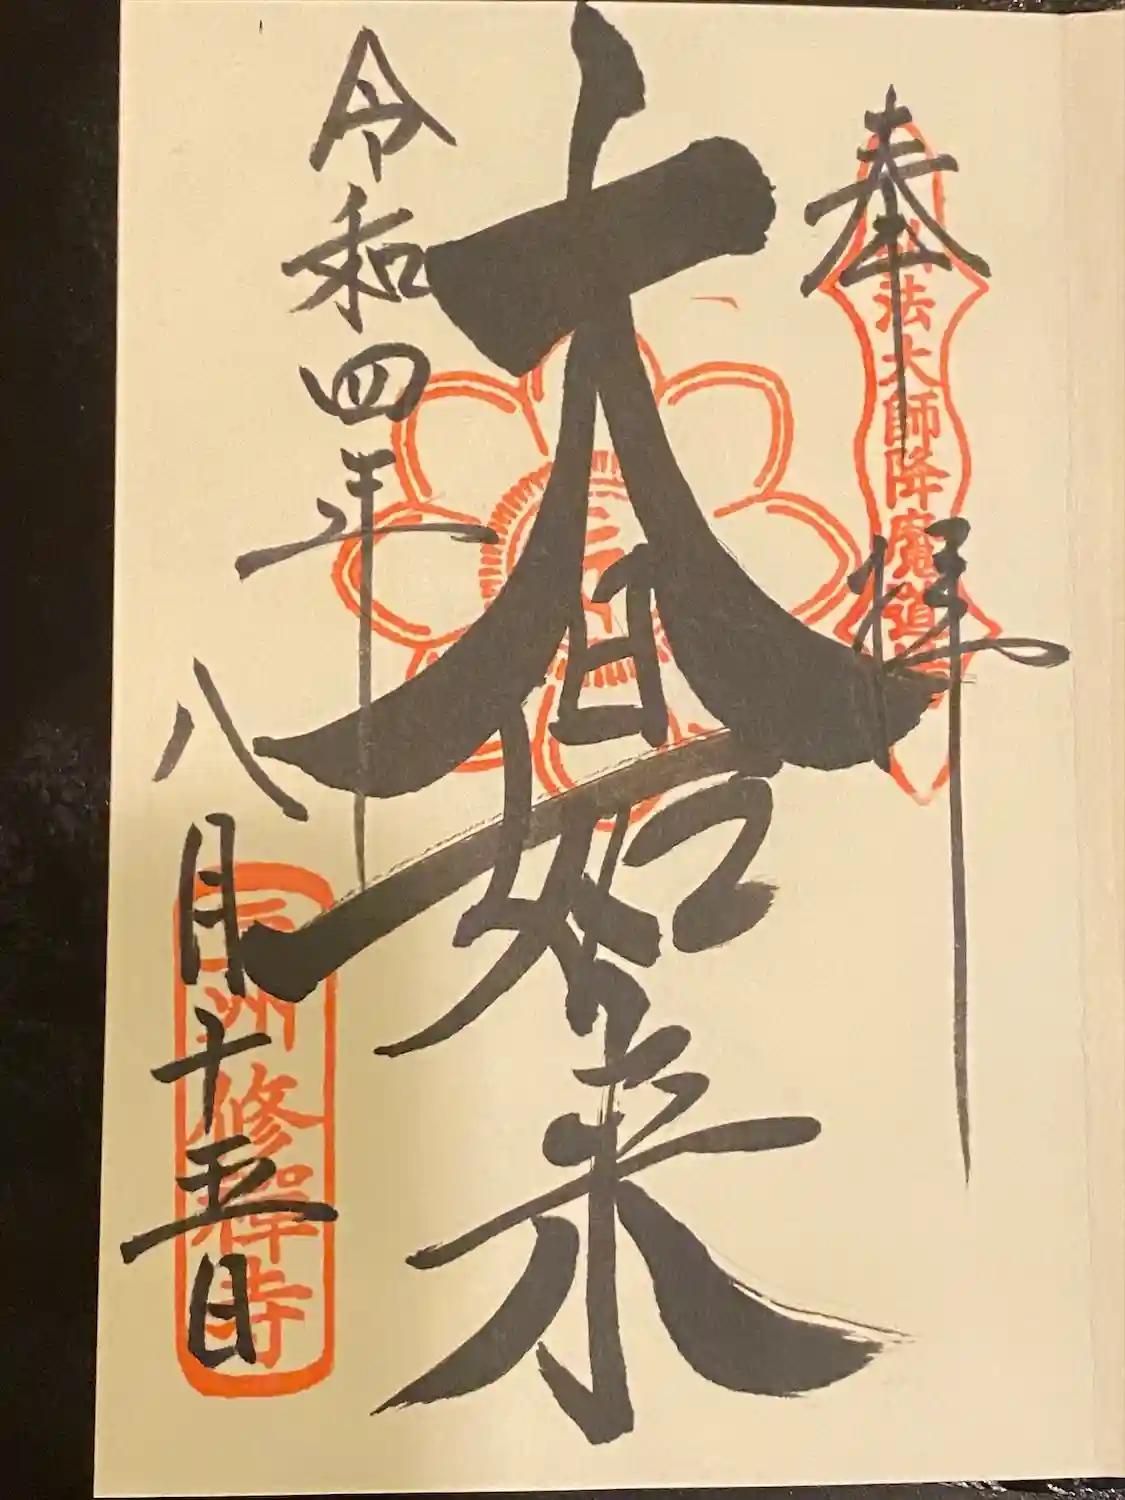 奉拝
弘法大師降魔道場
大日如来
令和四年
八月十五日
豆州修禅寺